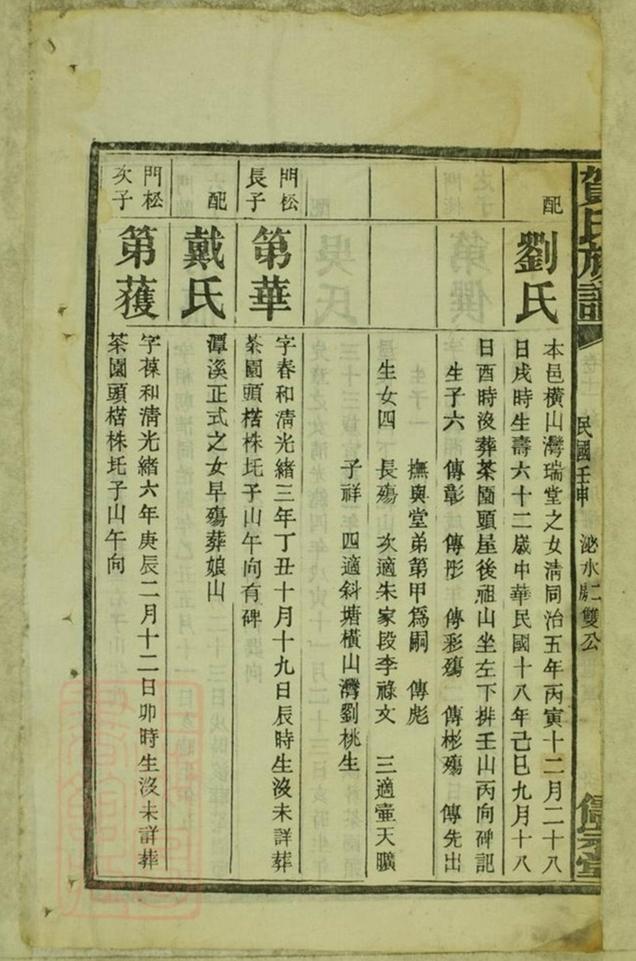 賀氏族譜
民國壬申
泌水 雙公
配
劉氏
本邑橫山灣瑞堂之女清同治五年丙寅十二月二十八
日戌時生壽六十二歲中華民國十八年己巳九月十八
日酉時沒葬茶園頭屋後祖山坐左下排壬山丙向碑記
生子六 傳彰 傳彤 傳彩殤 傳彬殤 傳先出
撫與堂弟第甲爲嗣 傳彪
生女四 長殤 次適朱家段李祿文 三適壷天曠
子祥 四適斜塘橫山灣劉桃生
門松
長子
第華
字春和清光緒三年丁丑十月十九日辰時生沒未詳葬
茶園頭楛株坵子山午向有碑
配
戴氏
潭溪正式之女早殤葬娘山
門松
次子
第蒦
字葆和清光緒六年庚辰二月十二日卯時生沒未詳葬
茶園頭楛株坵子山午向